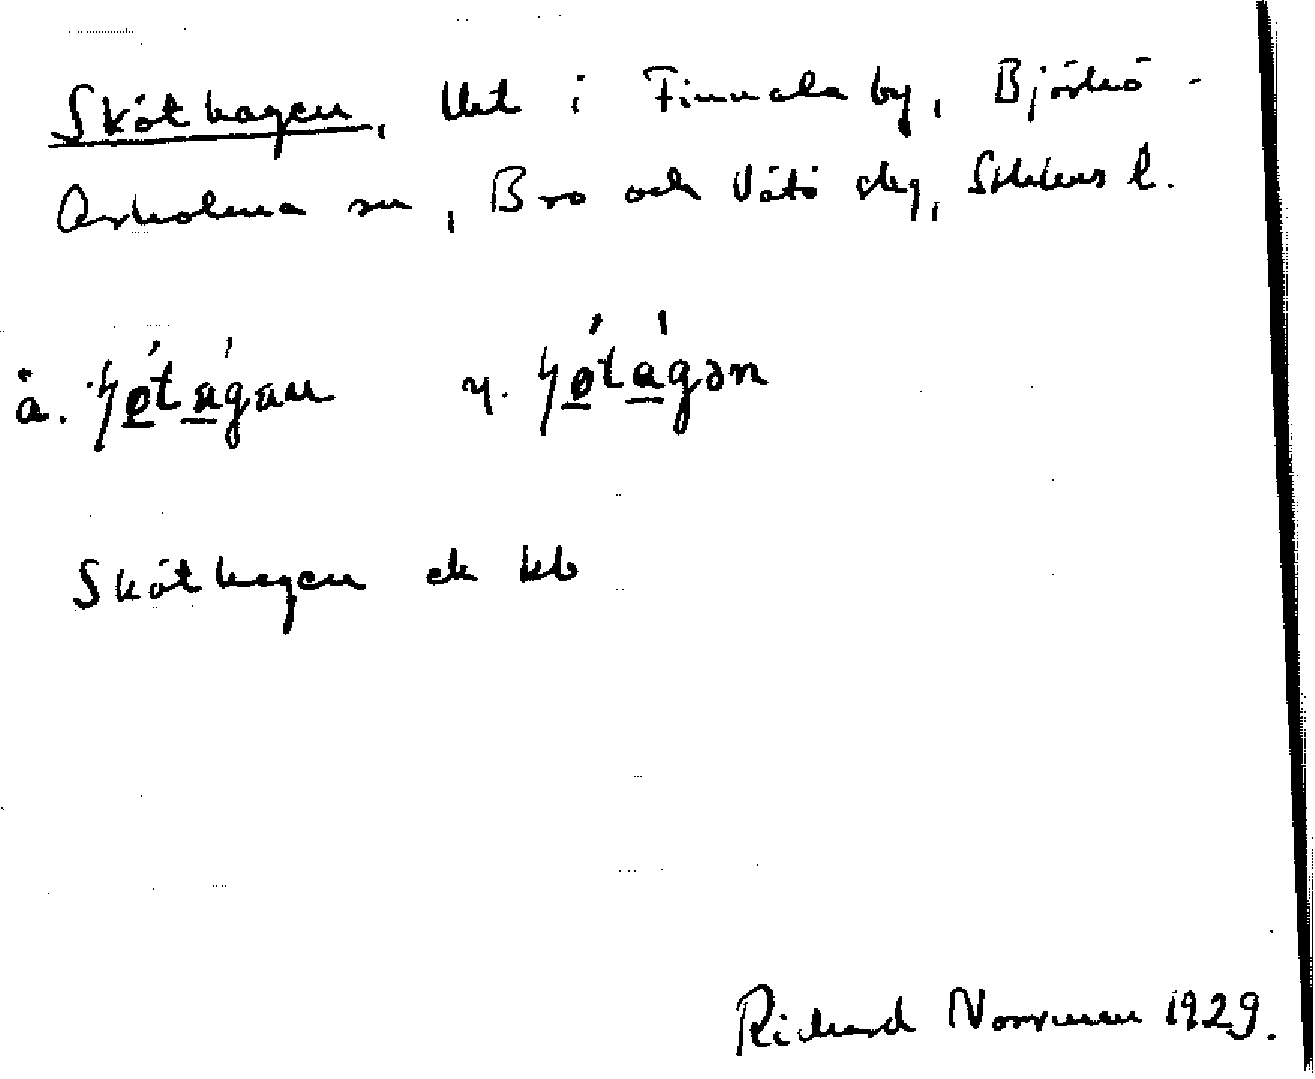 Skóthagen, Utt i Finnala by, Björkö-
Arholma sn, Bro och Vätö skg, Sthlms l.
å. ʃøtagan y. ʃøtagən
Skóthagen ek kb
Richard Norrman 1929.